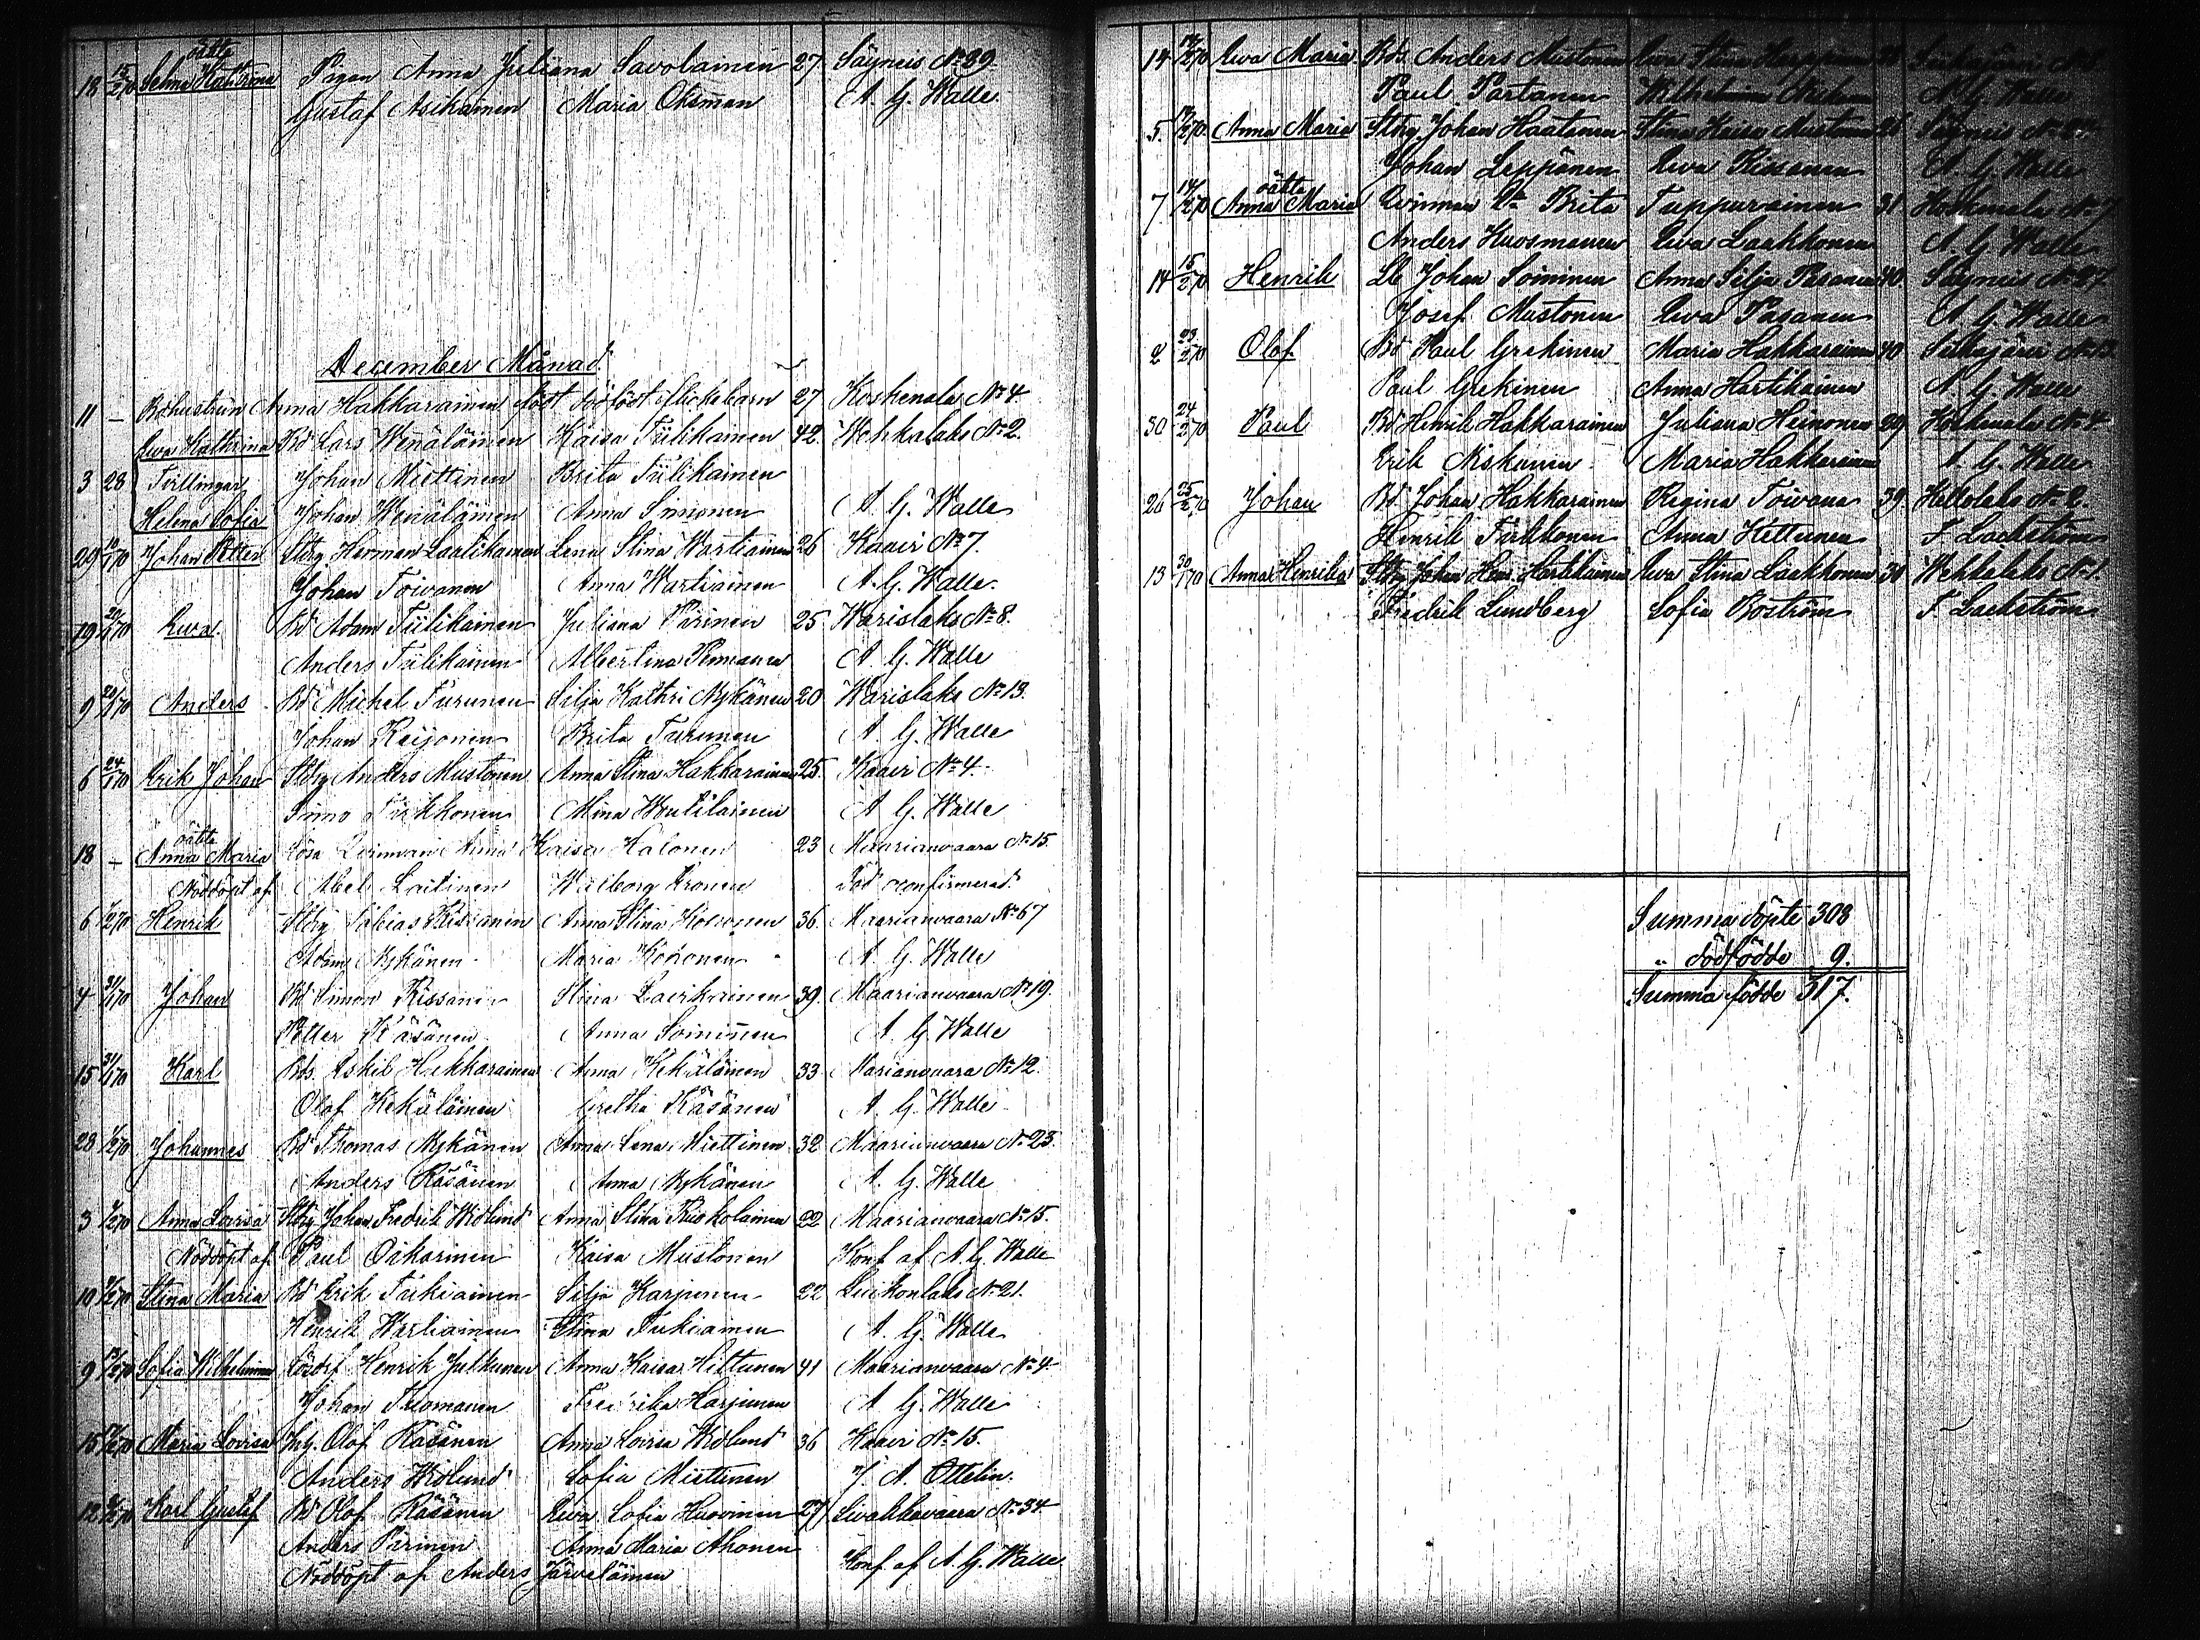 oäkta
18 15/2 70 Selma Kathrina Pigan Anna Juliana Savolainen 27 Säyneis No 89.
Gustaf Asikainen Maria Oksman A. G. Walle
December Månad.
11 — Bdhustrun Anna Hakkarainen födt dödfödt flickebarn 27 Koskenala No 4
Ewa Kathrina Bd Lars Wenäläinen Kaisa Tiilikainen 42. Wehkalaks No 2.
3 28 Tvillingar Johan Miettinen Brita Tiilikainen
Helena Sofia Johan Wenäläinen Anna Simonen A. G. Walle
29 /1 70 Johan Petter Stbg Herman Laatikainen Lena Stina Wartiainen 26 Kaavi No 7.
Johan Toivanen Anna Wartiainen A. G. Walle.
19 20/1 70 Ewa Bd Adam Tiilikainen Juliana Pärinen 25 Warislaks No 8.
Anders Tiilikainen Albertina A. G. Walle
9 /1 70 Anders Bd Michel Turunen Silja Kathri Nykänen 20 Warislaks No 13.
Johan Keijonen Brita Turunen A. G. Walle
6 24/1 70 Erik Johan Stbg Anders Mustonen Anna Stina Hakkarainen 25. Kaavi No 4.
Simo Tirkkonen Mina Woutilainen A. G. Walle
oäkta
18 — Anna Maria Lösa Qvinnan Anna Kaisa Halonen 23 Maarianvaara No 15.
Nöddöpt af Abel Laitinen Walborg Död oconfirmerad.
6 1/2 70 Henrik Stbg Tobias Rissanen Anna Stina 36. Maarianvaara No 67
Adam Nykänen Maria A. G. Walle
4 31/1 70 Johan Bd Simon Rissanen Stina 39. Maarianvaara No 19.
Petter Räsänen Anna Soininen A. G. Walle
15 31/1 70 Karl Bds. Eskil Hakkarainen Anna Kekäläinen 33 Marianvaara No 12.
Olof Kekäläinen Gretha Räsänen A. G. Walle
28 1/2 70 Johannes Bd Thomas Nykänen Anna Lena Miettinen 32 Maarianvaara No 23.
Anders Räsänen Anna Nykänen A. G. Walle
3 /2 70 Anna Lovisa Stbg Johan Fredrik Widlund Anna Stina 22 Maarianvaara No 15.
Nöddöpt af Paul Oikarinen Kaisa Mustonen Konf af A. G. Walle
10 /2 70 Stina Maria Bd Erik Tukiainen Silja Karjunen 22 Luikonlaks No 21.
Henrik Wartiainen Stina Tukiainen A. G. Walle
9 /2 70 Sofia Wilhelmina Henrik Julkunen Anna Kaisa Hiltunen 41 Maarianvaara No 4
Johan Tuomainen Fredrika Harjunen A. G. Walle
15 /2 70 Maria Lovisa Inh. Olof Räsänen Anna Lovisa Widlund 36 Kaavi No 15.
Anders Widlund Sofia Miettinen J. A. Ottelin.
12 /2 70 Karl Gustaf Bd Olof Räsänen Ewa Sofia Huovinen 27 Siwakkavaara No 34
Anders Pärinen Anna Maria Ahonen
Nöddöpt af Anders Järveläinen Konf af A. G. Walle
14 /2 70 Ewa Maria Bds. Anders Mustonen Ewa Stina
Paul Partanen Wilhelmina A. G. Walle
5. /2 70 Anna Maria Stbg Johan Haatanen Stina Kaisa Mustonen 26 Säyneis No
Johan Leppänen Ewa Rissanen A. G. Walle
oäkta
7 14/2 70 Anna Maria Qvinnan Brita Tuppurainen 31 Koskenala No 7
Anders Kuosmanen Ewa Laakkonen A. G. Walle
14 15/2 70 Henrik Lb Johan Soininen Anna Silja Pasanen 40. Säyneis No 87
Josef Mustonen Ewa Pasanen A. G. Walle
2 23/2 70 Olof Bd Paul Grekinen Maria Hakkarainen 40 Siikajärvi No
Paul Grekinen Anna Hartikainen A. G. Walle
30 24/2 70 Paul Bd Henrik Hakkarainen Juliana Heinonen 29 Koskenala No 4
Erik Niskanen Maria Hakkarainen A. G. Walle
26 25/2 70 Johan Bd Johan Hakkarainen Regina Toivana 39. No 2.
Henrik Tirkkonen Anna Kettunen F. Lackström
13 30/1 70 Anna Henrika Stbg Johan Henr. Hartikainen Ewa Stina Laakkonen 31 Wehkalaks No 1.
Fredrik Lundberg Sofia Boström F. Lackström
Summa döpte 308
" dödfödde 9.
Summa födde 317.